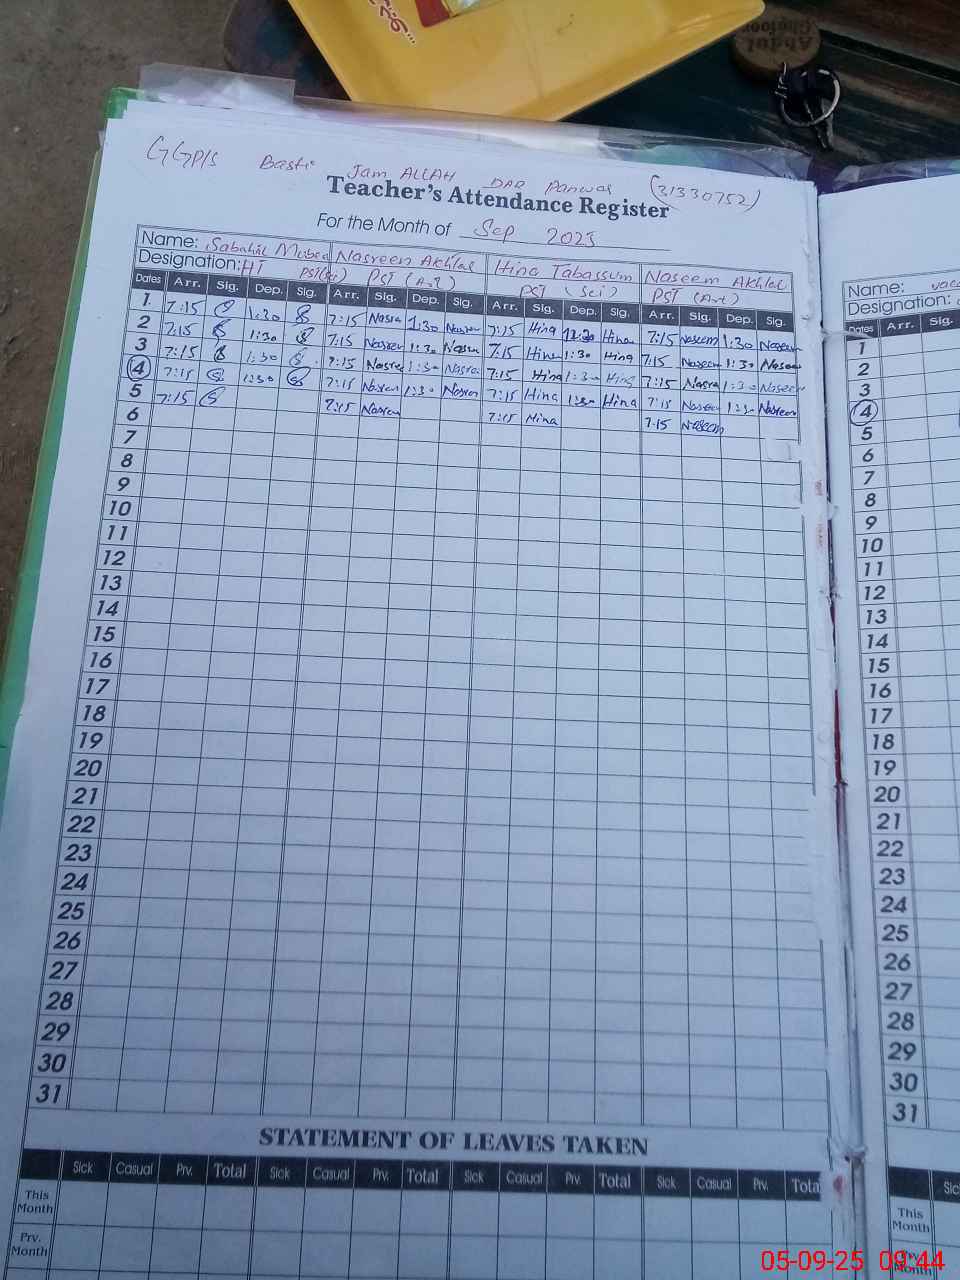 GGP/S Basti Jam ALLAH DAD Panwar (31330752)
Teacher's Attendance Register
For the Month of Sep 2025
Name: Sabahil Nasreen Akhlaq Hina Tabassum Naseem Akhlaq
Designation: HT PST(Sci) PST (Art) PST (Sci) PST (Art)
Dates Arr. Sig. Dep. Sig. Arr. Sig. Dep. Sig. Arr. Sig. Dep. Sig. Arr. Sig. Dep. Sig.
1 7:15 1:30 7:15 1:30 7:15 Hina Hina 7:15 Naseem 1:30 Naseem
2 7:15 1:30 7:15 Nasreen 1:30 7:15 Hina 1:30 Hina 7:15 Naseem 1:30 Naseem
3 7:15 1:30 7:15 Nasreen 1:30 Nasreen 7:15 Hina 1:30 Hina 7:15 1:30 Naseem
4 7:15 1:30 7:15 Nasreen 1:30 Nasreen 7:15 Hina 1:30 Hina 7:15 1:30 Naseem
5 7:15 7:15 Nasreen 7:15 Hina 7:15 Naseem
6
7
8
9
10
11
12
13
14
15
16
17
18
19
20
21
22
23
24
25
26
27
28
29
30
31
STATEMENT OF LEAVES TAKEN
Sick Casual Prv. Total Sick Casual Prv. Total Sick Casual Prv. Total Sick Casual Prv. Tota
This Month
Prv. Month
Name:
Designation:
Dates Arr. Sig.
1
2
3
4
5
6
7
8
9
10
11
12
13
14
15
16
17
18
19
20
21
22
23
24
25
26
27
28
29
30
31
This Month
05-09-25 09:44